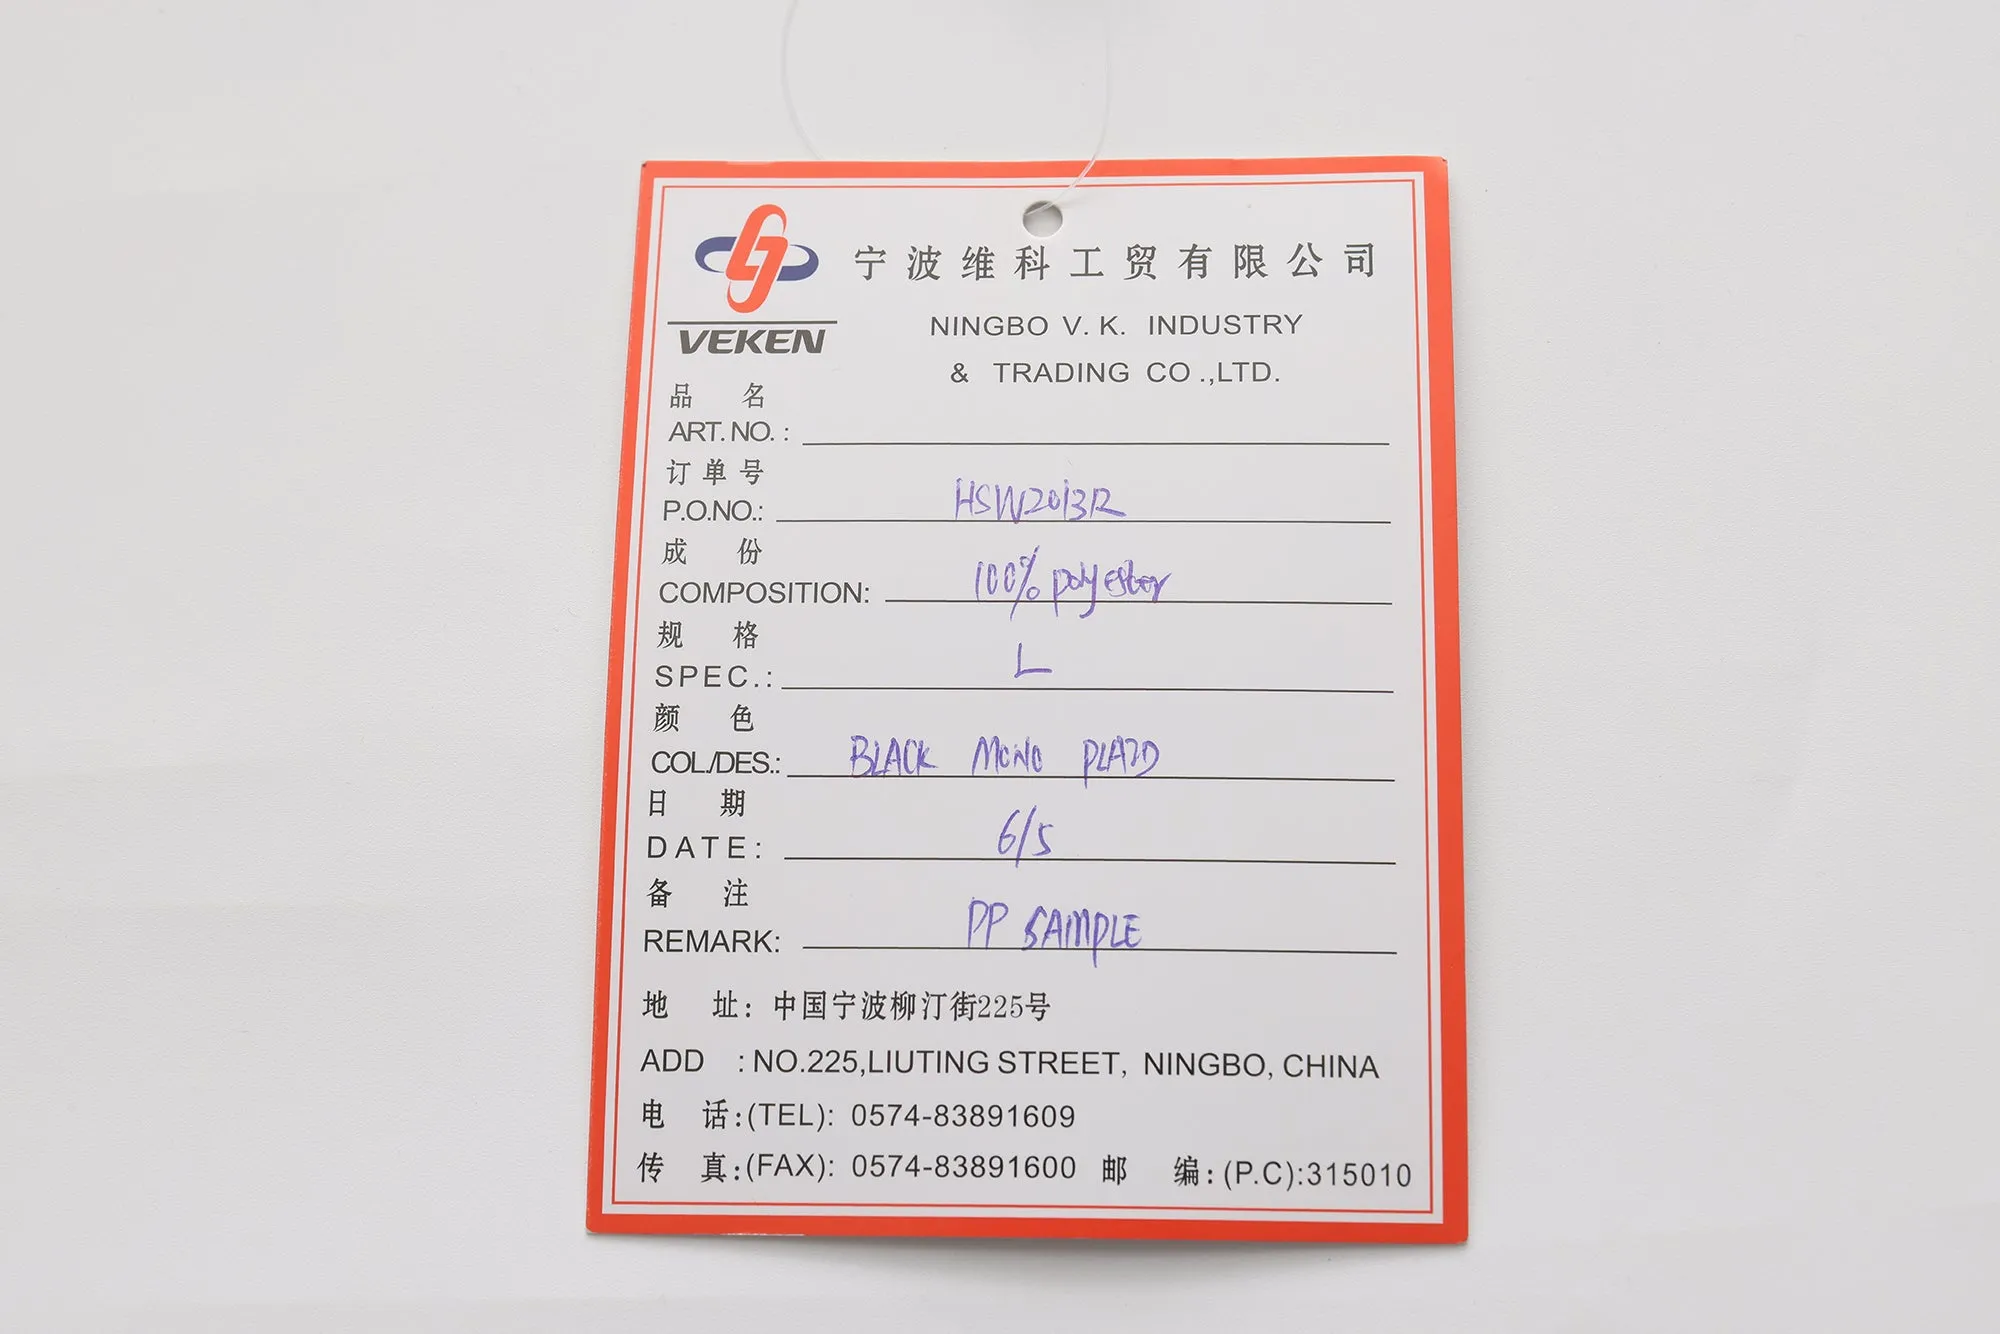 VEKEN
宁波维科工贸有限公司
NINGBO V. K. INDUSTRY
& TRADING CO.,LTD.
品 名
ART. NO. :
订 单 号
P.O.NO.: HSW2013R
成 份
COMPOSITION: 100% polyester
规 格
SPEC.: L
颜 色
COL./DES.: BLACK MONO PLAID
日 期
DATE: 6/5
备 注
REMARK: PP SAMPLE
地 址: 中国宁波柳汀街225号
ADD : NO.225,LIUTING STREET, NINGBO, CHINA
电 话:(TEL): 0574-83891609
传 真:(FAX): 0574-83891600 邮 编:(P.C):315010